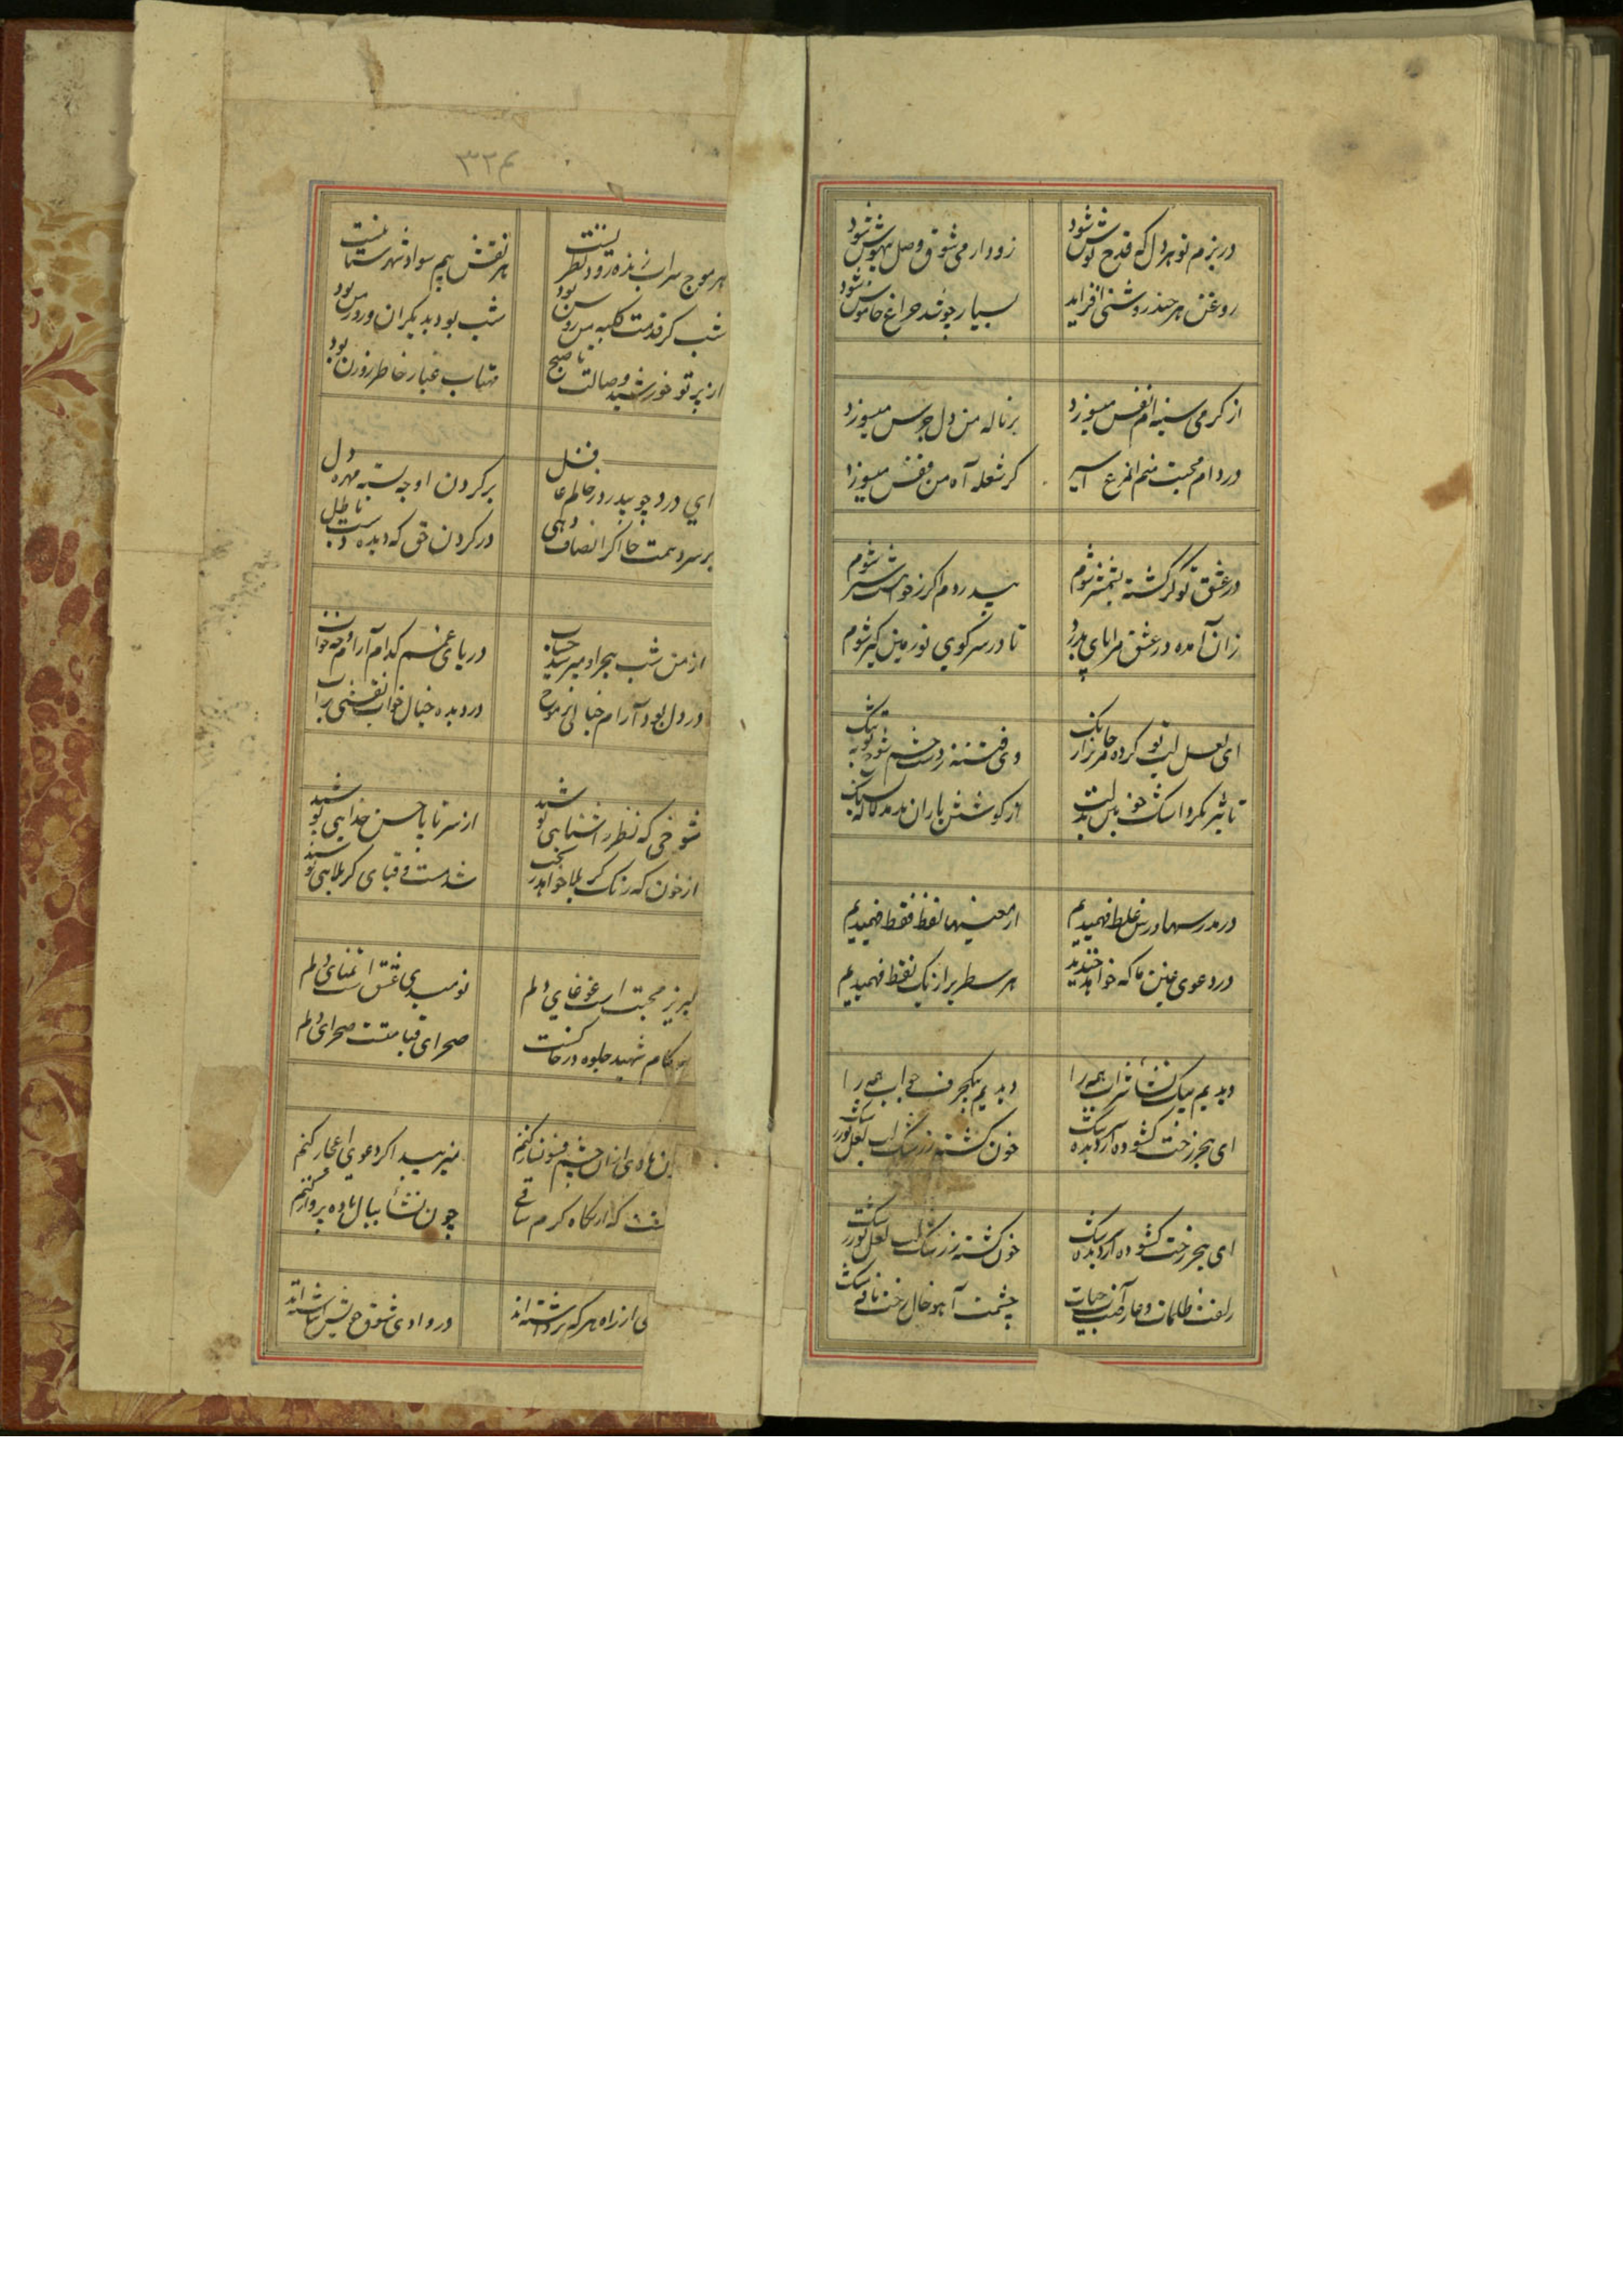 در بزم تو هر دل که قدح نوش شود
زود از می شوق وصل بیهوش شود
روغن هر چند روشنی افزاید
بسیار چو شد چراغ خاموش شود
از گرمی سینه ام نفس میسوزد
بر ناله من دل جرس میسوزد
در دام محبت منم آن مرغ اسیر
کز شعله آه من قفس میسوزد
در عشق تو گر کشته شمشیر شوم
بیدردم اگر ز خواهشت سیر شوم
زان آمده در عشق مرا پای بدرد
تا در سر کوی تو زمین گیر شوم
ای لعل لب تو کرده
وی فتنه ز دست چشم
تاثیر نکرد اشک خونین بدلت
از کوشش باران
در مدرسها درس غلط فهمیدیم
از معنیها لفظ فقط فهمیدیم
در دعوی عین ما که خواهد خندید
هر سطر پر از یک نقط فهمیدیم
دیدیم بیک نشأ شراب همه را
دیدیم بیکحرف جواب همه را
ای هجر رخت کشوده از دیده سرشک
خون گشته ز رشک لب لعل تو
ای هجر رخت کشوده از دیده سرشک
خون گشته ز رشک لب لعل تو
زلفت ظلمات و عارضت آب حیات
چشمت آهو خال رخت نافه مشک
۳۲۴
هر موج سراب زنده رود نظر
هر نقش پیم سواد شهرستانیست
شب کز قدمت کلبه من روشن بود
شب بود بدیگران و روز من بود
از پرتو خورشید وصالت تا صبح
مهتاب غبار خاطر روزن بود
ای درد چو بیدرد ز حالم غافل
بر گردن او چه بسته مهره دل
بر سر دهمت جا اگر انصاف دهی
در گردن حق که دیده دست باطل
از من شب هجر او میرسید حساب
دریای غم کدام آرام و چه خواب
در دل بود آرام خیالی بر موج
در دیده خیال خواب نقشی بر آب
شوخی که نظر آشنایی پوشید
از سر تا پا حسن خدایی پوشید
از خون که رنگ کربلا خواهد
شد مست و قبای کربلایی پوشید
لبریز محبت است غوغای دلم
نومیدی عشق است تمنای دلم
کام شهید جلوه در خاکست
صحرای قیامتست صحرای دلم
از آن چشم فسونساز کنم
میزیبد اگر دعوی اعجاز کنم
که از نگاه کرم ساقی
چون نشأ ببال باده پرواز کنم
از راه هر که برداشته اند
در وادی شوق